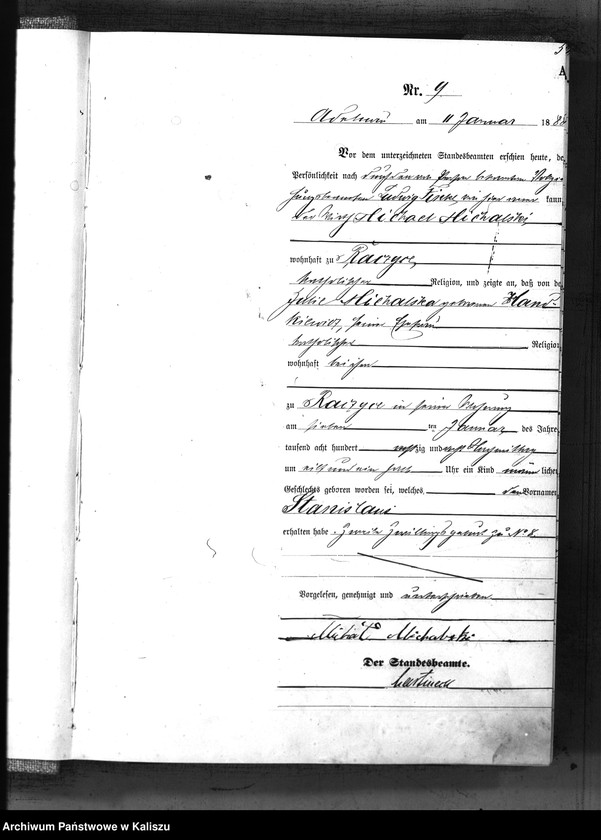 Nr. 9
Adelnau am 11 Januar 188
Vor dem unterzeichneten Standesbeamten erschien heute, de
Persönlichkeit nach durch den von Person bekannten
Ludwig kannt,
der Wirth Michael Michalski,
wohnhaft zu Raczyce,
katholischer Religion, und zeigte an, daß von de
Julie Michalska geborenen
seiner Ehefrau
katholischer Religion
wohnhaft bei ihm
zu Raczyce in seiner Wohnung
am sieben ten Januar des Jahre
tausend acht hundert acht zig und acht Vormittag
um Uhr ein Kind männ licher
Geschlechts geboren worden sei, welches den Vornamen
Stanislaus
erhalten habe. Zweite Zwillingsgeburt zu No 8.
Vorgelesen, genehmigt und unterschrieben
Michalski
Der Standesbeamte.
Archiwum Państwowe w Kaliszu